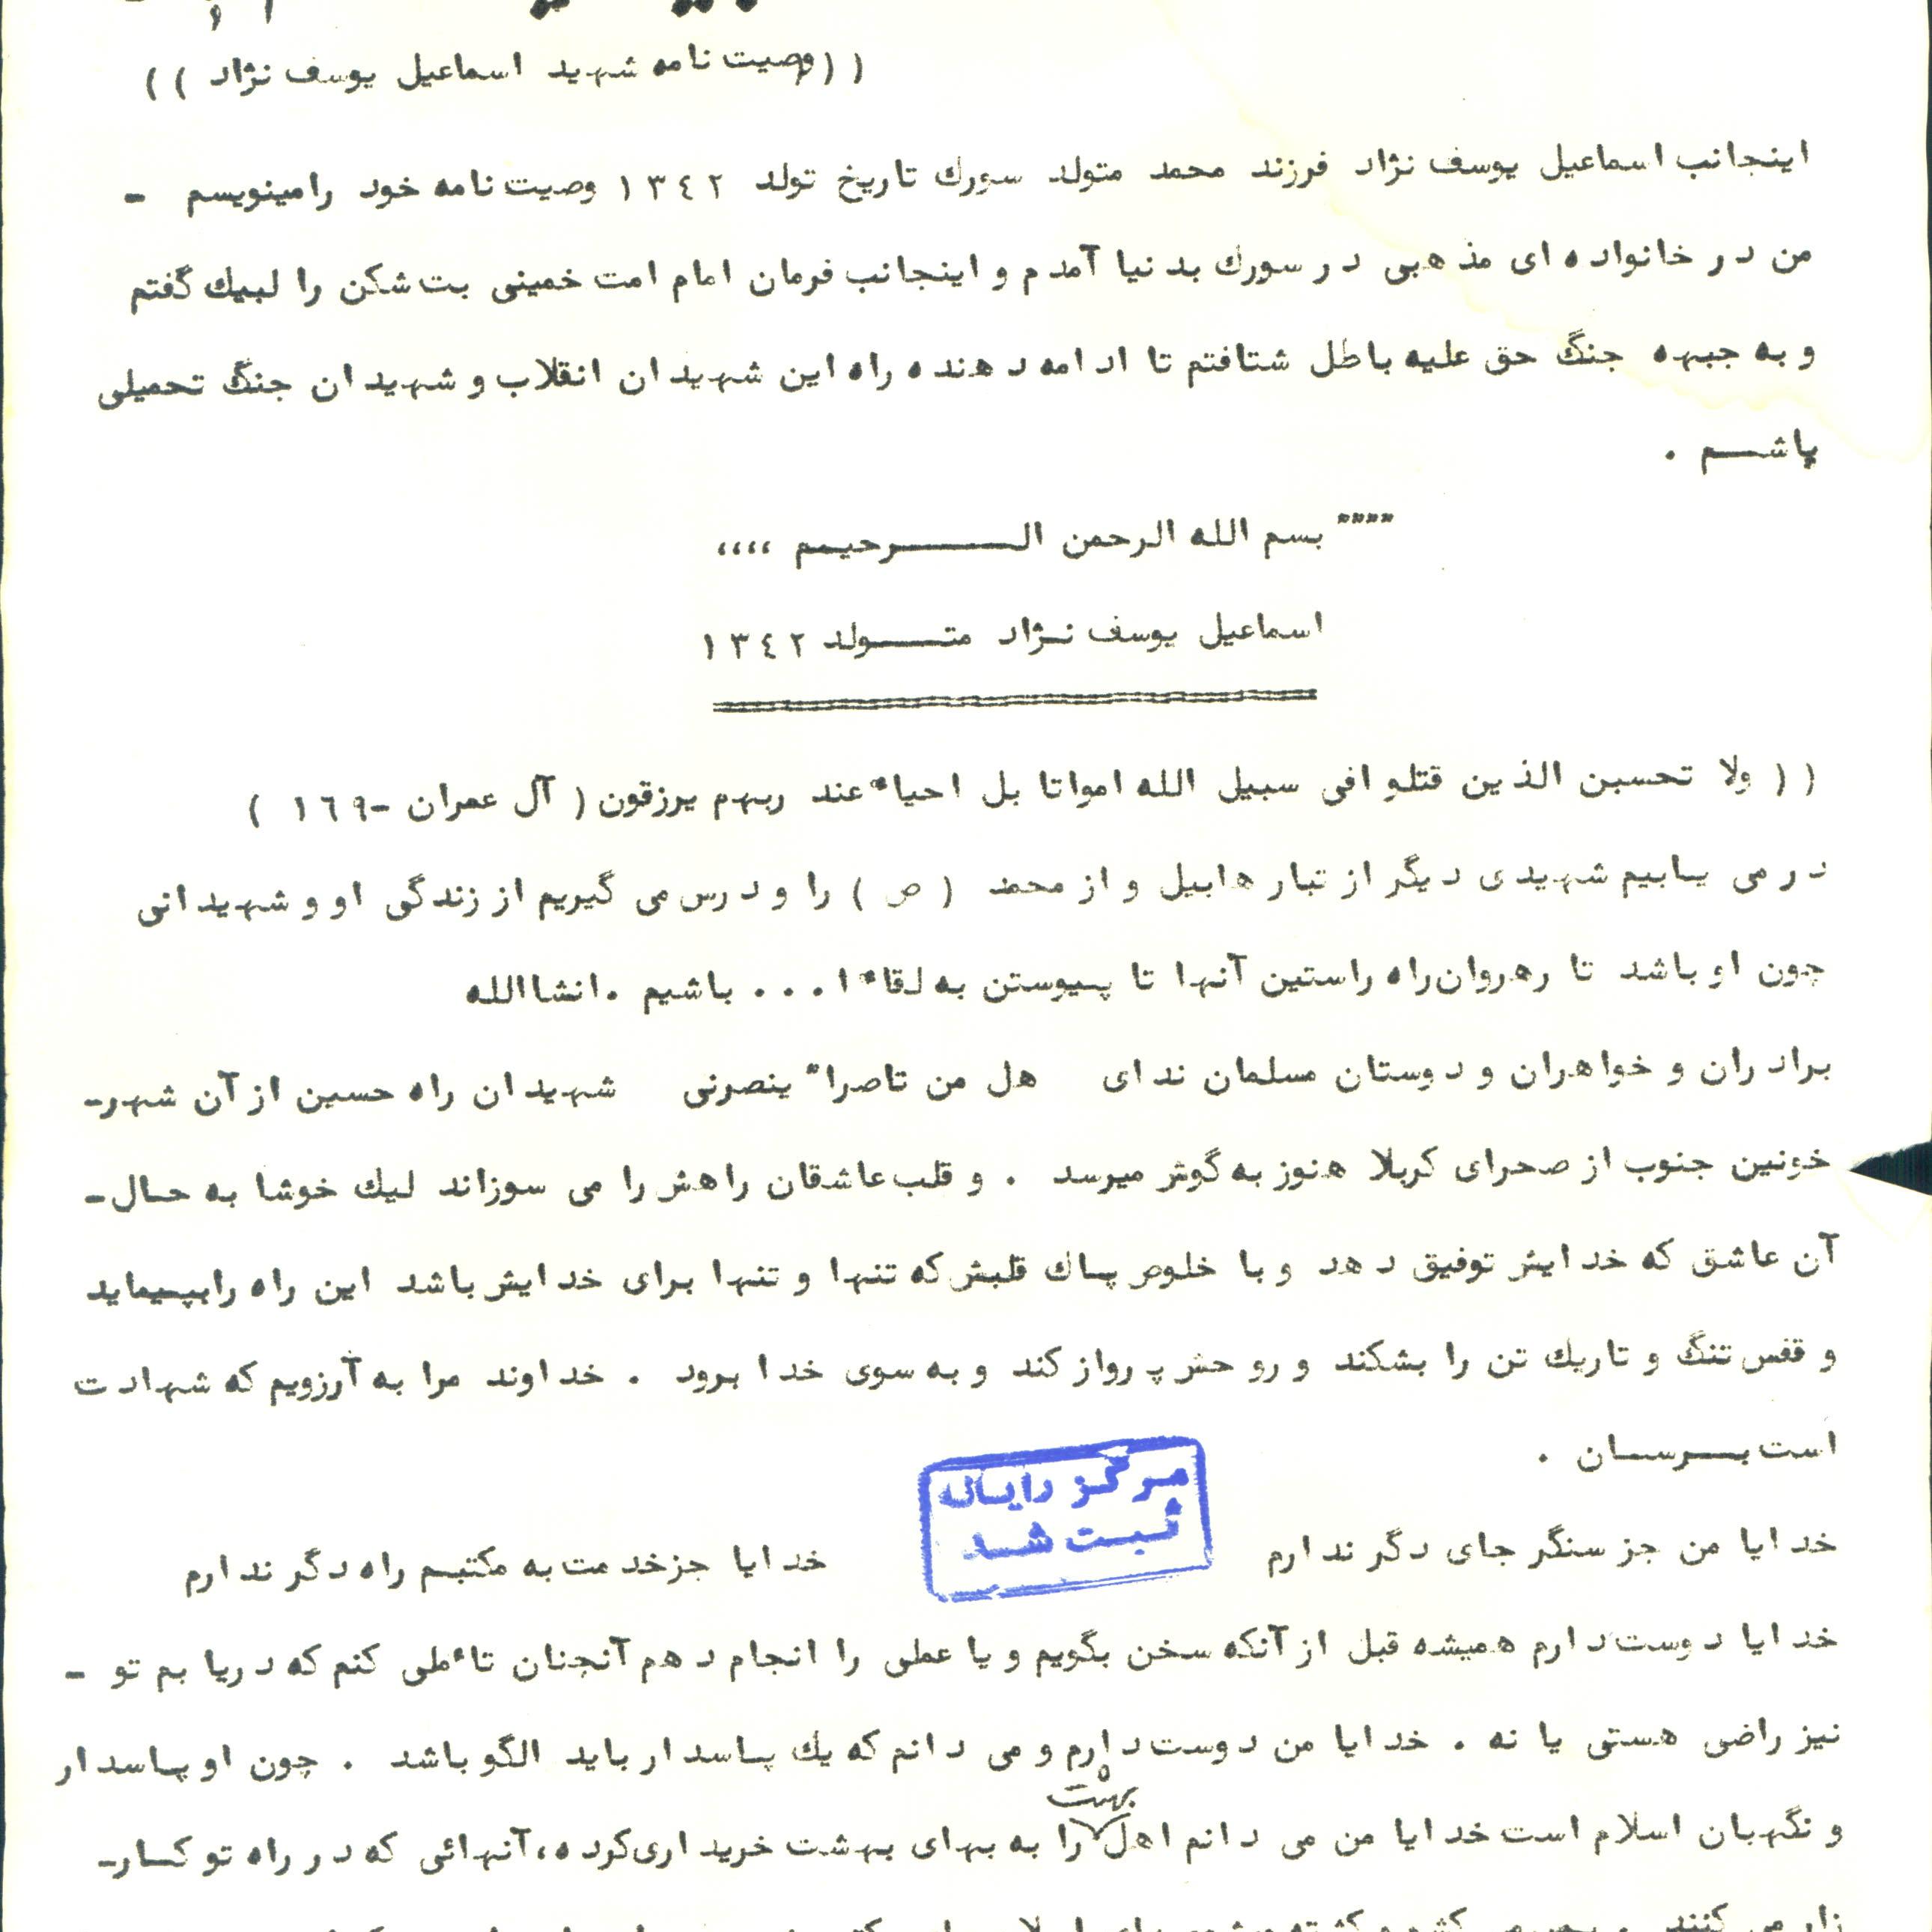 (( وصیت نامه شهید اسماعیل یوسف نژاد ))
اینجانب اسماعیل یوسف نژاد فرزند محمد متولد سورك تاریخ تولد ١٣٤٢ وصیت نامه خود رامینویسم -
من در خانواده ای مذهبی در سورك بدنیا آمدم و اینجانب فرمان امام امت خمینی بت شکن را لبیك گفتم
و به جبهه جنگ حق علیه باطل شتافتم تا ادامه دهنده راه این شهیدان انقلاب و شهیدان جنگ تحمیلی
باشـــم .
"""" بسم الله الرحمن الــــــرحیم ،،،،
اسماعیل یوسف نـژاد متــــولد ١٣٤٢
(( ولا تحسبن الذین قتلو افی سبیل الله امواتا بل احیاء عند ربهم یرزقون ( آل عمران -١٦٩ )
در می یـابیم شهیدی دیگر از تبار هابیل و از محمد ( ص ) را و درس می گیریم از زندگی او و شهیدانی
چون او باشد تا رهروان راه راستین آنها تا پـیوستن به لقاء ا... باشیم .انشاالله
برادران و خواهران و دوستان مسلمان ندای هل من ناصرا" ینصرنی شهیدان راه حسین از آن شهر-
خونین جنوب از صحرای کربلا هنوز به گوش میرسد . و قلب عاشقان راهش را می سوزاند لیك خوشا به حـال-
آن عاشق که خدایش توفیق دهد و با خلوص پـاك قلبش که تنها و تنها برای خدایش باشد این راه رابپـیماید
و قفس تنگ و تاریك تن را بشکند و روحش پرواز کند و به سوی خدا برود . خداوند مرا به آرزویم که شهادت
است بــرسـان .
مرکز رایـانه
ثـبـت شـد
خدایا من جز سنگر جای دگر ندارم خدایا جزخدمت به مکتبـم راه دگر ندارم
خدایا دوست دارم همیشه قبل از آنکه سخن بگویم و یا عملی را انجام دهم آنچنان تاءملی کنم که دریا بم تو -
نیز راضی هستی یا نه . خدایا من دوست دارم و می دانم که یك پـاسدار باید الگو باشد . چون او پـاسدار
و نگهبان اسلام است خدایا من می دانم اهل را به بهای بهشت خریداری کرده، آنهائی که در راه تو کـار-
زار می کنند